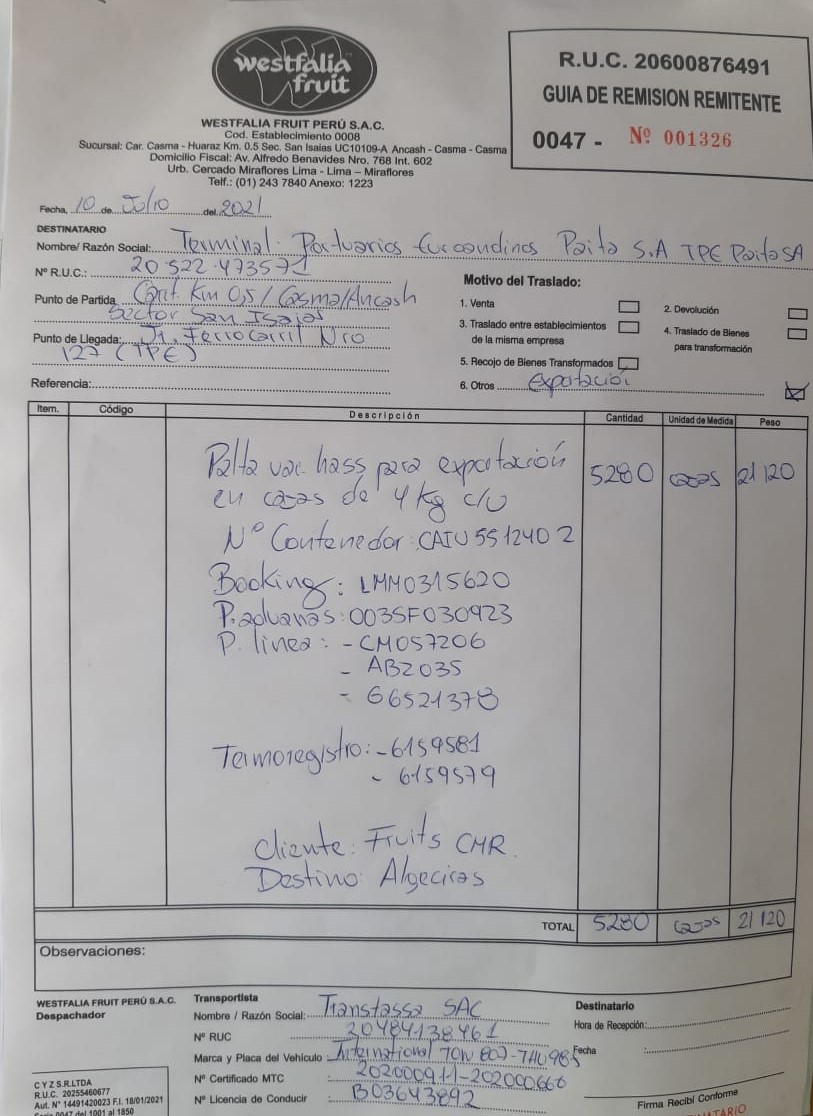 westfalia
fruit
WESTFALIA FRUIT PERÚ S.A.C.
Cod. Establecimiento 0008
Sucursal: Car. Casma - Huaraz Km. 0.5 Sec. San Isaias UC10109-A Ancash - Casma - Casma
Domicilio Fiscal: Av. Alfredo Benavides Nro. 768 Int. 602
Urb. Cercado Miraflores Lima - Lima – Miraflores
Telf.: (01) 243 7840 Anexo: 1223
R.U.C. 20600876491
GUIA DE REMISION REMITENTE
0047 - Nº 001326
Fecha, 10 de Julio del 2021
DESTINATARIO
Nombre/ Razón Social: Terminal Portuarios Euroandinos Paita S.A TPE Paita SA
Nº R.U.C.: 20522473571
Punto de Partida Carr. Km 0,5 / Casma/Ancash
Sector San Isaias
Punto de Llegada: Jr. Ferrocarril Nro
127 (TPE)
Referencia:
Motivo del Traslado:
1. Venta
2. Devolución
3. Traslado entre establecimientos
de la misma empresa
4. Traslado de Bienes
para transformación
5. Recojo de Bienes Transformados
6. Otros Exportación
Item. Código Descripción Cantidad Unidad de Medida Peso
Palta var. hass para exportación 5280 cajas 21120
en cajas de 4 kg c/u
Nº Contenedor: CAIU 551240 2
Booking: LMM0315620
P. aduanas: 003SF030923
P. linea: - CM057206
- AB2035
- 66521378
Termoregistro: - 6159581
- 6159579
Cliente: Fruits CMR.
Destino: Algeciras
TOTAL 5280 cajas 21120
Observaciones:
WESTFALIA FRUIT PERÚ S.A.C.
Despachador
Transportista
Nombre / Razón Social: Transtassa SAC
Nº RUC 20484138461
Marca y Placa del Vehículo International
Nº Certificado MTC 202000911-202000666
Nº Licencia de Conducir B03643892
Destinatario
Hora de Recepción:
Fecha :
Firma Recibí Conforme
C Y Z S.R.LTDA
R.U.C. 20255460677
Aut. Nº 14491420023 F.I. 18/01/2021
Serie 0047 del 1001 al 1850